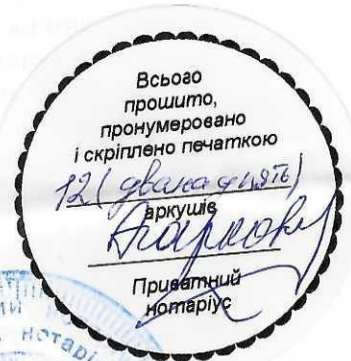 Всього
прошито,
пронумеровано
і скріплено печаткою
12 (дванадцять)
аркушів
Приватний
нотаріус